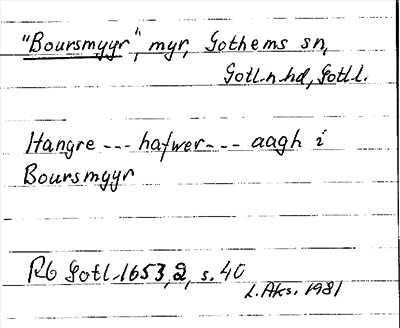 "Boursmyyr", myr, Gothems sn,
Gotl. n hd, Gotl.
Hangre --- hafwer --- aagh i
Boursmyyr
Rb Gotl 1653, 2, s. 40
L. Aks. 1981